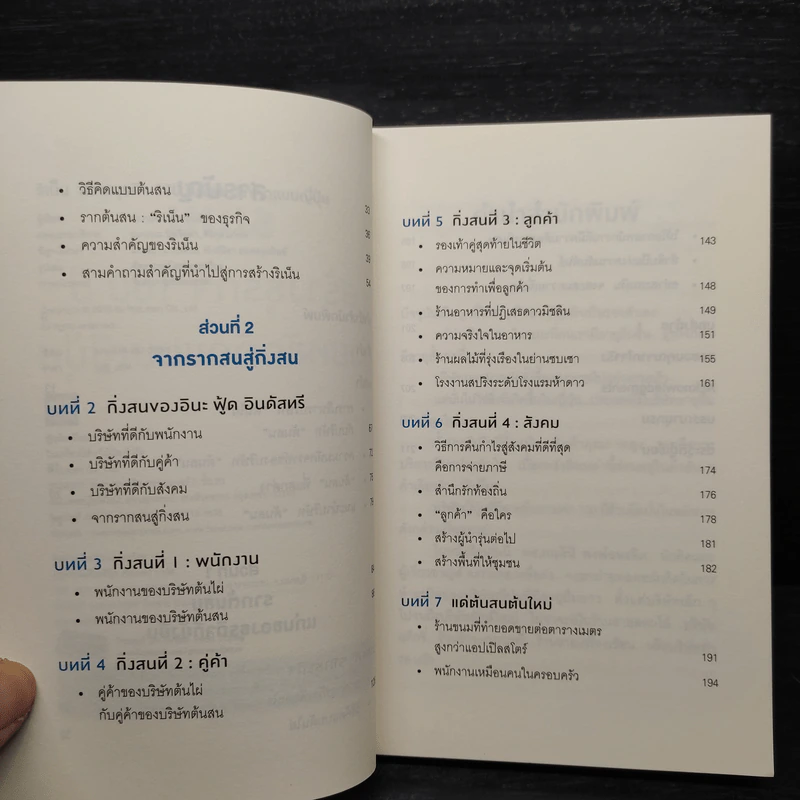 • วิธีคิดแบบต้นสน
• รากต้นสน : “ริเน็น” ของธุรกิจ
• ความสำคัญของริเน็น
• สามคำถามสำคัญที่นำไปสู่การสร้างริเน็น 54
ส่วนที่ 2
จากรากสนสู่กิ่งสน
บทที่ 2 กิ่งสนของอินะ ฟู้ด อินดัสทรี
• บริษัทที่ดีกับพนักงาน
• บริษัทที่ดีกับคู่ค้า
• บริษัทที่ดีกับสังคม
• จากรากสนสู่กิ่งสน
บทที่ 3 กิ่งสนที่ 1 : พนักงาน
• พนักงานของบริษัทต้นไผ่
• พนักงานของบริษัทต้นสน
บทที่ 4 กิ่งสนที่ 2 : คู่ค้า
• คู่ค้าของบริษัทต้นไผ่
กับคู่ค้าของบริษัทต้นสน
บทที่ 5 กิ่งสนที่ 3 : ลูกค้า
• รองเท้าคู่สุดท้ายในชีวิต 143
• ความหมายและจุดเริ่มต้น
ของการทำเพื่อลูกค้า 148
• ร้านอาหารที่ปฏิเสธดาวมิชลิน 149
• ความจริงใจในอาหาร 151
• ร้านผลไม้ที่รุ่งเรืองในย่านซบเซา 155
• โรงงานสปริงระดับโรงแรมห้าดาว 161
บทที่ 6 กิ่งสนที่ 4 : สังคม
• วิธีการคืนกำไรสู่สังคมที่ดีที่สุด
คือการจ่ายภาษี 174
• สำนึกรักท้องถิ่น 176
• “ลูกค้า” คือใคร 178
• สร้างผู้นำรุ่นต่อไป 181
• สร้างพื้นที่ให้ชุมชน 182
บทที่ 7 แด่ต้นสนต้นใหม่
• ร้านขนมที่ทำยอดขายต่อตารางเมตร
สูงกว่าแอปเปิลสโตร์ 191
• พนักงานเหมือนคนในครอบครัว 194